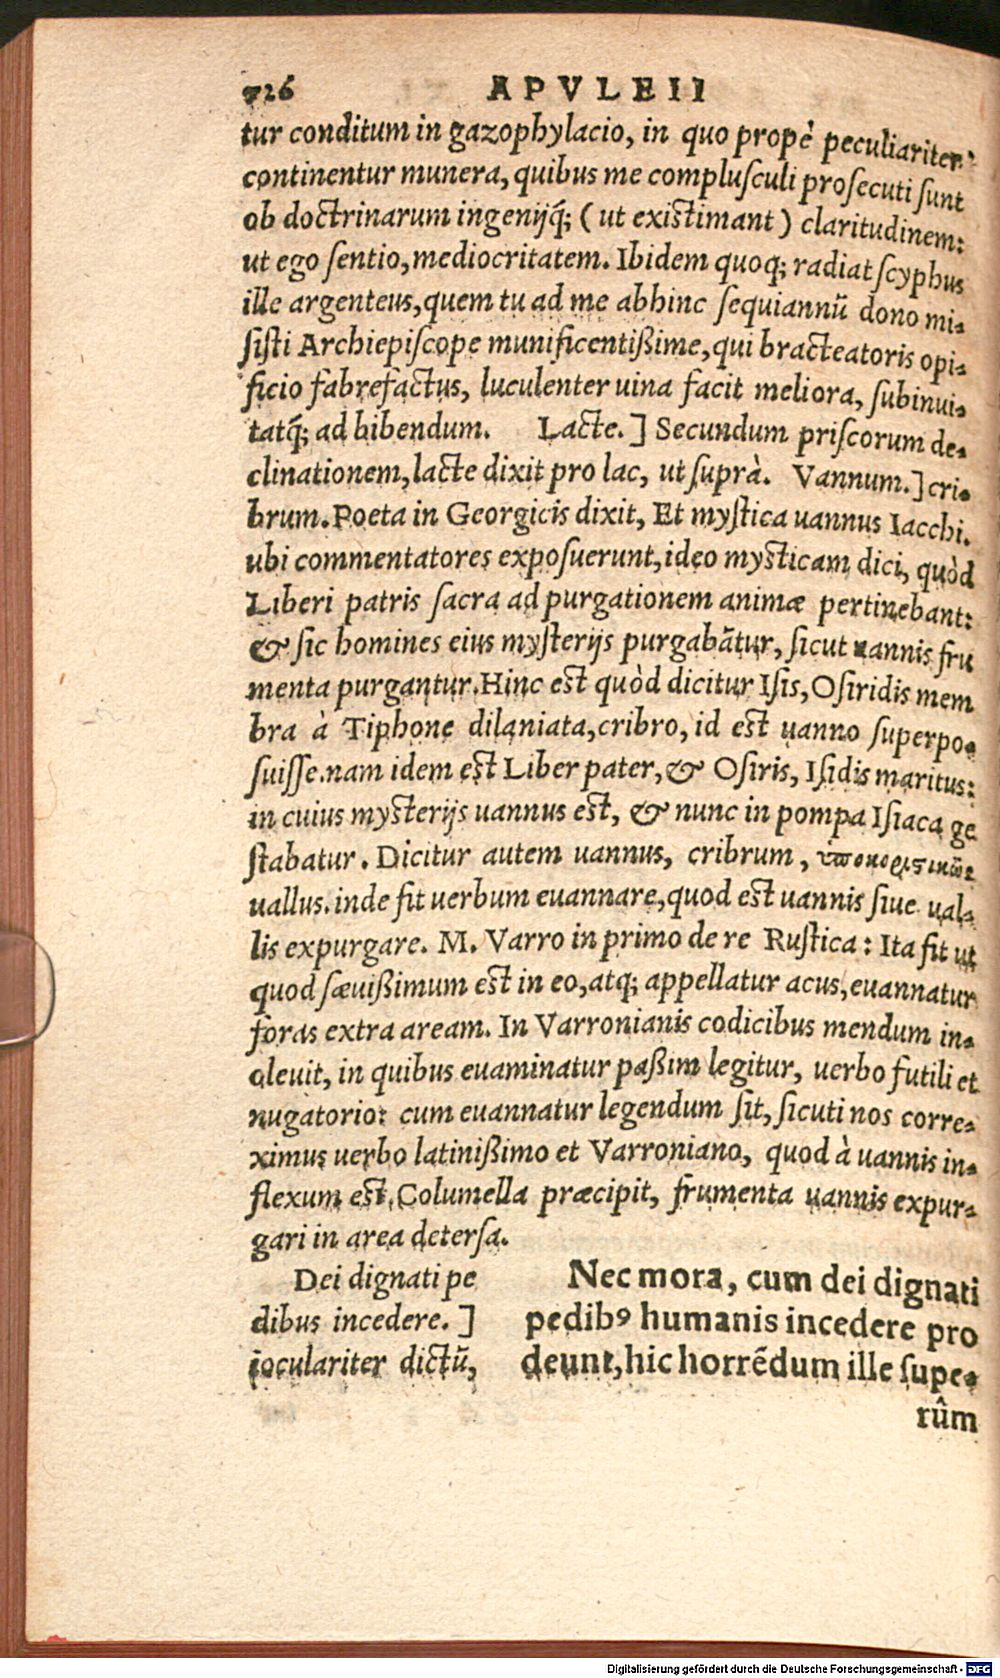 726 APVLEII
tur conditum in gazophylacio, in quo propè peculiariter
continentur munera, quibus me complusculi prosecuti sunt
ob doctrinarum ingenijq́; (ut existimant) claritudinem:
ut ego sentio, mediocritatem. Ibidem quoq; radiat scyphus
ille argenteus, quem tu ad me abhinc sequiannũ dono mi-
sisti Archiepiscope munificentißime, qui bracteatoris opi-
ficio fabrefactus, luculenter uina facit meliora, subinui-
tatq́; ad bibendum. Lacte.] Secundum priscorum de-
clinationem, lacte dixit pro lac, ut suprà. Vannum.] cri-
brum. Poeta in Georgicis dixit, Et mystica uannus Iacchi.
ubi commentatores exposuerunt, ideo mysticam dici, quòd
Liberi patris sacra ad purgationem animæ pertinebant:
& sic homines eius mysterijs purgabãtur, sicut uannis fru
menta purgantur. Hinc est quòd dicitur Isis, Osiridis mem
bra à Tiphone dilaniata, cribro, id est uanno superpo-
suisse. nam idem est Liber pater, & Osiris, Isidis maritus:
in cuius mysterijs uannus est, & nunc in pompa Isiaca ge
stabatur. Dicitur autem uannus, cribrum, ὑποκοριστικῶς
uallus. inde fit uerbum euannare, quod est uannis siue ual-
lis expurgare. M. Varro in primo de re Rustica: Ita fit ut
quod sæuißimum est in eo, atq; appellatur acus, euannatur
foras extra aream. In Varronianis codicibus mendum in-
oleuit, in quibus euaminatur paßim legitur, uerbo futili et
nugatorio: cum euannatur legendum sit, sicuti nos corre-
ximus uerbo latinißimo et Varroniano, quod à uannis in-
flexum est. Columella præcipit, frumenta uannis expur-
gari in area detersa.
Dei dignati pe
dibus incedere.]
ioculariter dictũ,
Nec mora, cum dei dignati
pedibꝰ humanis incedere pro
deunt, hic horrẽdum ille supe-
rûm
Digitalisierung gefördert durch die Deutsche Forschungsgemeinschaft - DFG